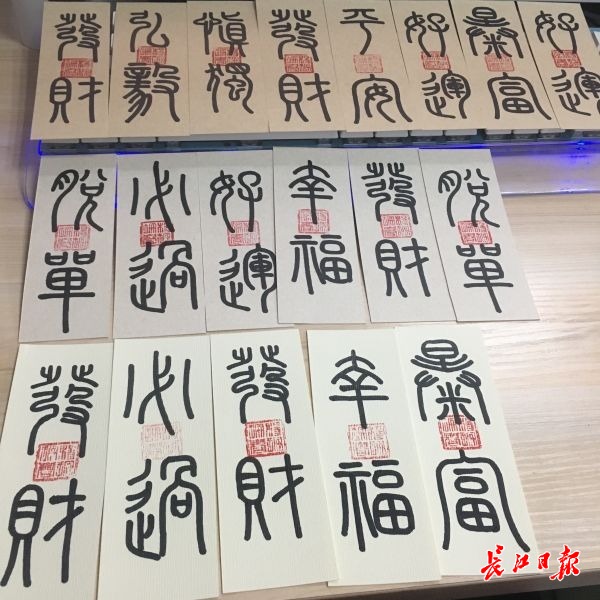 發財
弘毅
慎獨
發財
平安
好運
暴富
好運
脫單
必過
好運
幸福
發財
脫單
發財
必過
發財
幸福
暴富
长江日报